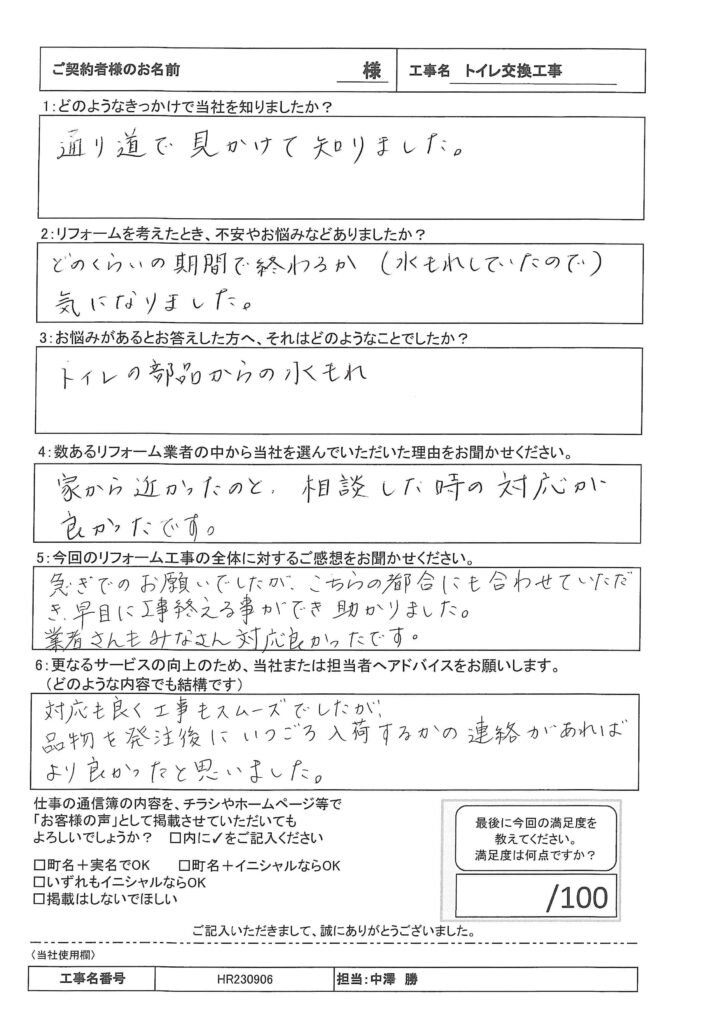 ご契約者様のお名前 様 工事名 トイレ交換工事
1：どのようなきっかけで当社を知りましたか？
通り道で見かけて知りました。
2：リフォームを考えたとき、不安やお悩みなどありましたか？
どのくらいの期間で終わるか（水もれしていたので）
気になりました。
3：お悩みがあるとお答えした方へ、それはどのようなことでしたか？
トイレの部品からの水もれ
4：数あるリフォーム業者の中から当社を選んでいただいた理由をお聞かせください。
家から近かったのと、相談した時の対応が
良かったです。
5：今回のリフォーム工事の全体に対するご感想をお聞かせください。
急ぎでのお願いでしたが、こちらの都合にも合わせていただ
き、早目に工事終える事ができ助かりました。
業者さんもみなさん対応良かったです。
6：更なるサービスの向上のため、当社または担当者へアドバイスをお願いします。
（どのような内容でも結構です）
対応も良く工事もスムーズでしたが、
品物を発注後にいつごろ入荷するかの連絡があれば
より良かったと思いました。
仕事の通信簿の内容を、チラシやホームページ等で
「お客様の声」として掲載させていただいても
よろしいでしょうか？ □内に✓をご記入ください
□町名＋実名でOK □町名＋イニシャルならOK
□いずれもイニシャルならOK
□掲載はしないでほしい
最後に今回の満足度を
教えてください。
満足度は何点ですか？
/100
ご記入いただきまして、誠にありがとうございました。
（当社使用欄）
工事名番号 HR230906 担当：中澤 勝